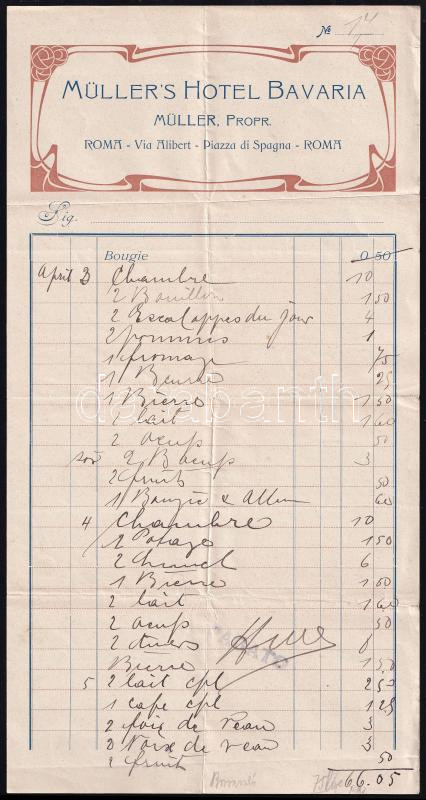 № 14
MÜLLER'S HOTEL BAVARIA
MÜLLER, PROPR.
ROMA - Via Alibert - Piazza di Spagna - ROMA
Sig.
Bougie 0 50
April 3 Chambre 10
2 Bouillon 1 50
2 Escalappes du jour 4
2 pommes 1
1 fromage 75
1 Beurre 25
1 Bierre 1 50
1 lait 1 60
2 oeufs 50
soir 2 Boeufs 3
2 fruits 50
1 Bougie & Allum 60
4 Chambre 10
2 Potage 1 50
2 6
1 Bierre 1 50
2 lait 1 60
2 oeufs 50
2 diners 8
Bierre 1 50
PAGATO
5 2 lait cpl 2 50
1 cafe cpl 1 25
2 foie de veau 3
2 Noix de veau 3
2 fruit 50
66.05
darabanth